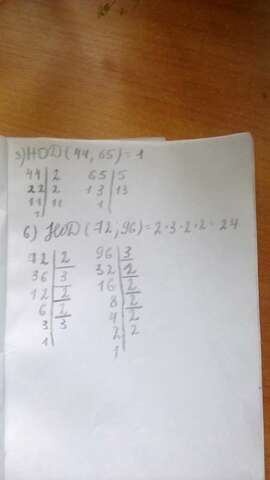 5) НОД (44, 65) = 1
44 | 2 65 | 5
22 | 2 13 | 13
11 | 11 1 |
1 |
6) НОД (72, 96) = 2·3·2·2 = 24
72 | 2 96 | 3
36 | 3 32 | 2
12 | 2 16 | 2
6 | 2 8 | 2
3 | 3 4 | 2
1 | 2 | 2
1